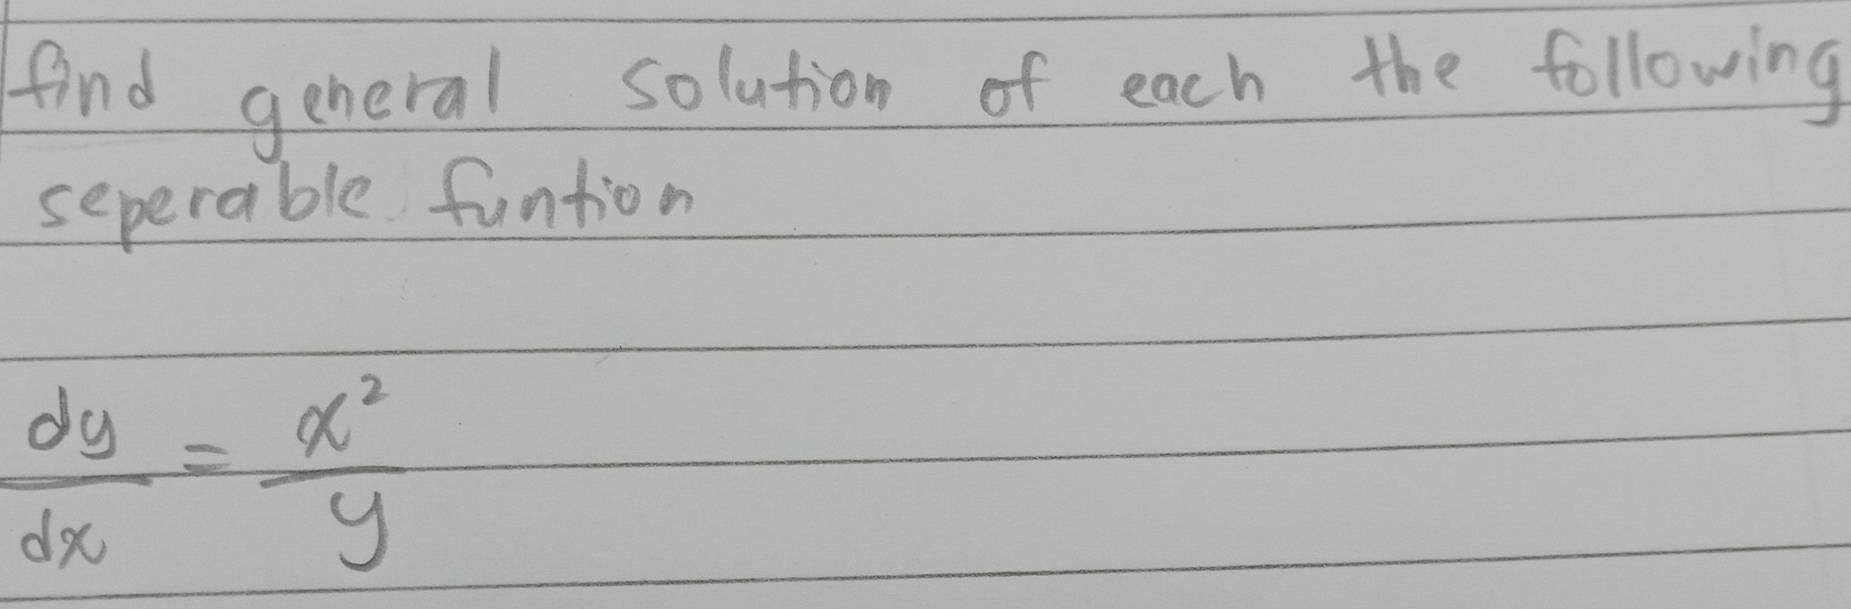 find general solution of each the following
seperable funtion
dy/dx = x²/y